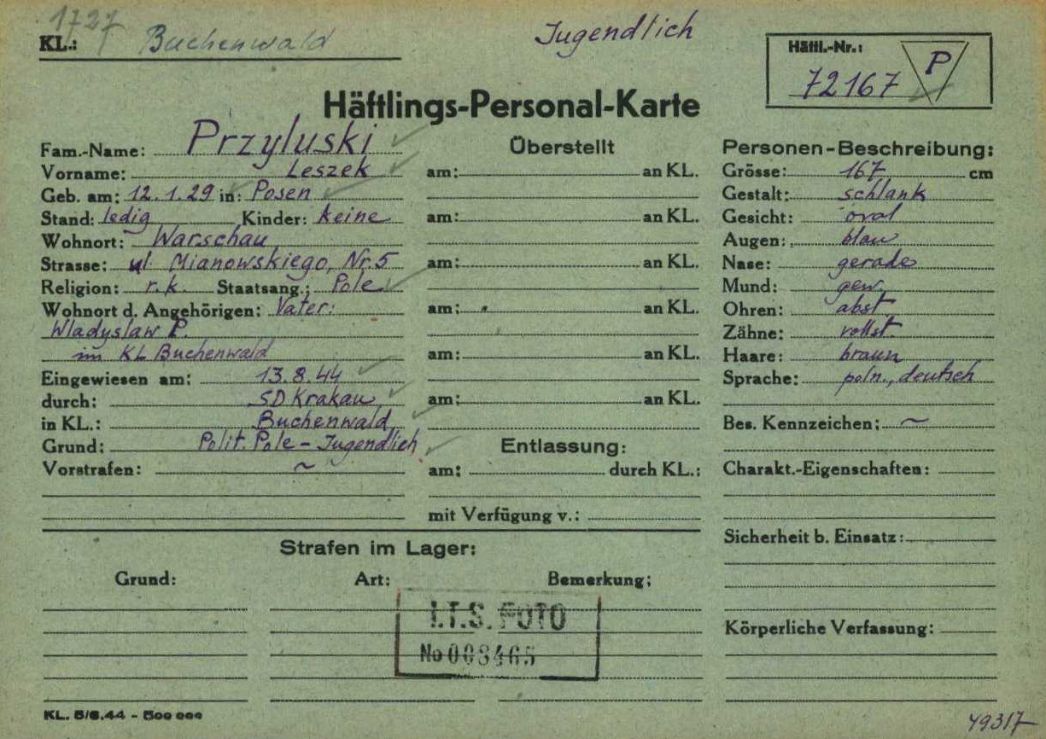 1727
KL.: Buchenwald
Jugendlich
Häftl.-Nr.:
72167 P
Häftlings-Personal-Karte
Fam.-Name: Przyluski
Vorname: Leszek
Geb. am: 12.1.29 in: Posen
Stand: ledig Kinder: keine
Wohnort: Warschau
Strasse: ul. Mianowskiego, Nr. 5
Religion: r.k. Staatsang.: Pole
Wohnort d. Angehörigen: Vater:
Wladyslaw P.
im KL Buchenwald
Eingewiesen am: 13.8.44
durch: SD Krakau
in KL.: Buchenwald
Grund: Polit. Pole - Jugendlich
Vorstrafen: ~
Überstellt
am: an KL.
am: an KL.
am: an KL.
am: an KL.
am: an KL.
am: an KL.
Entlassung:
am: durch KL.:
mit Verfügung v.:
Personen-Beschreibung:
Grösse: 167 cm
Gestalt: schlank
Gesicht: oval
Augen: blau
Nase: gerade
Mund: gew.
Ohren: abst
Zähne: vollst
Haare: braun
Sprache: poln., deutsch
Bes. Kennzeichen: ~
Charakt.-Eigenschaften:
Sicherheit b. Einsatz:
Körperliche Verfassung:
Strafen im Lager:
Grund: Art: Bemerkung:
I.T.S. FOTO
No 008465
KL. 5/6.44 - 500 000
49317